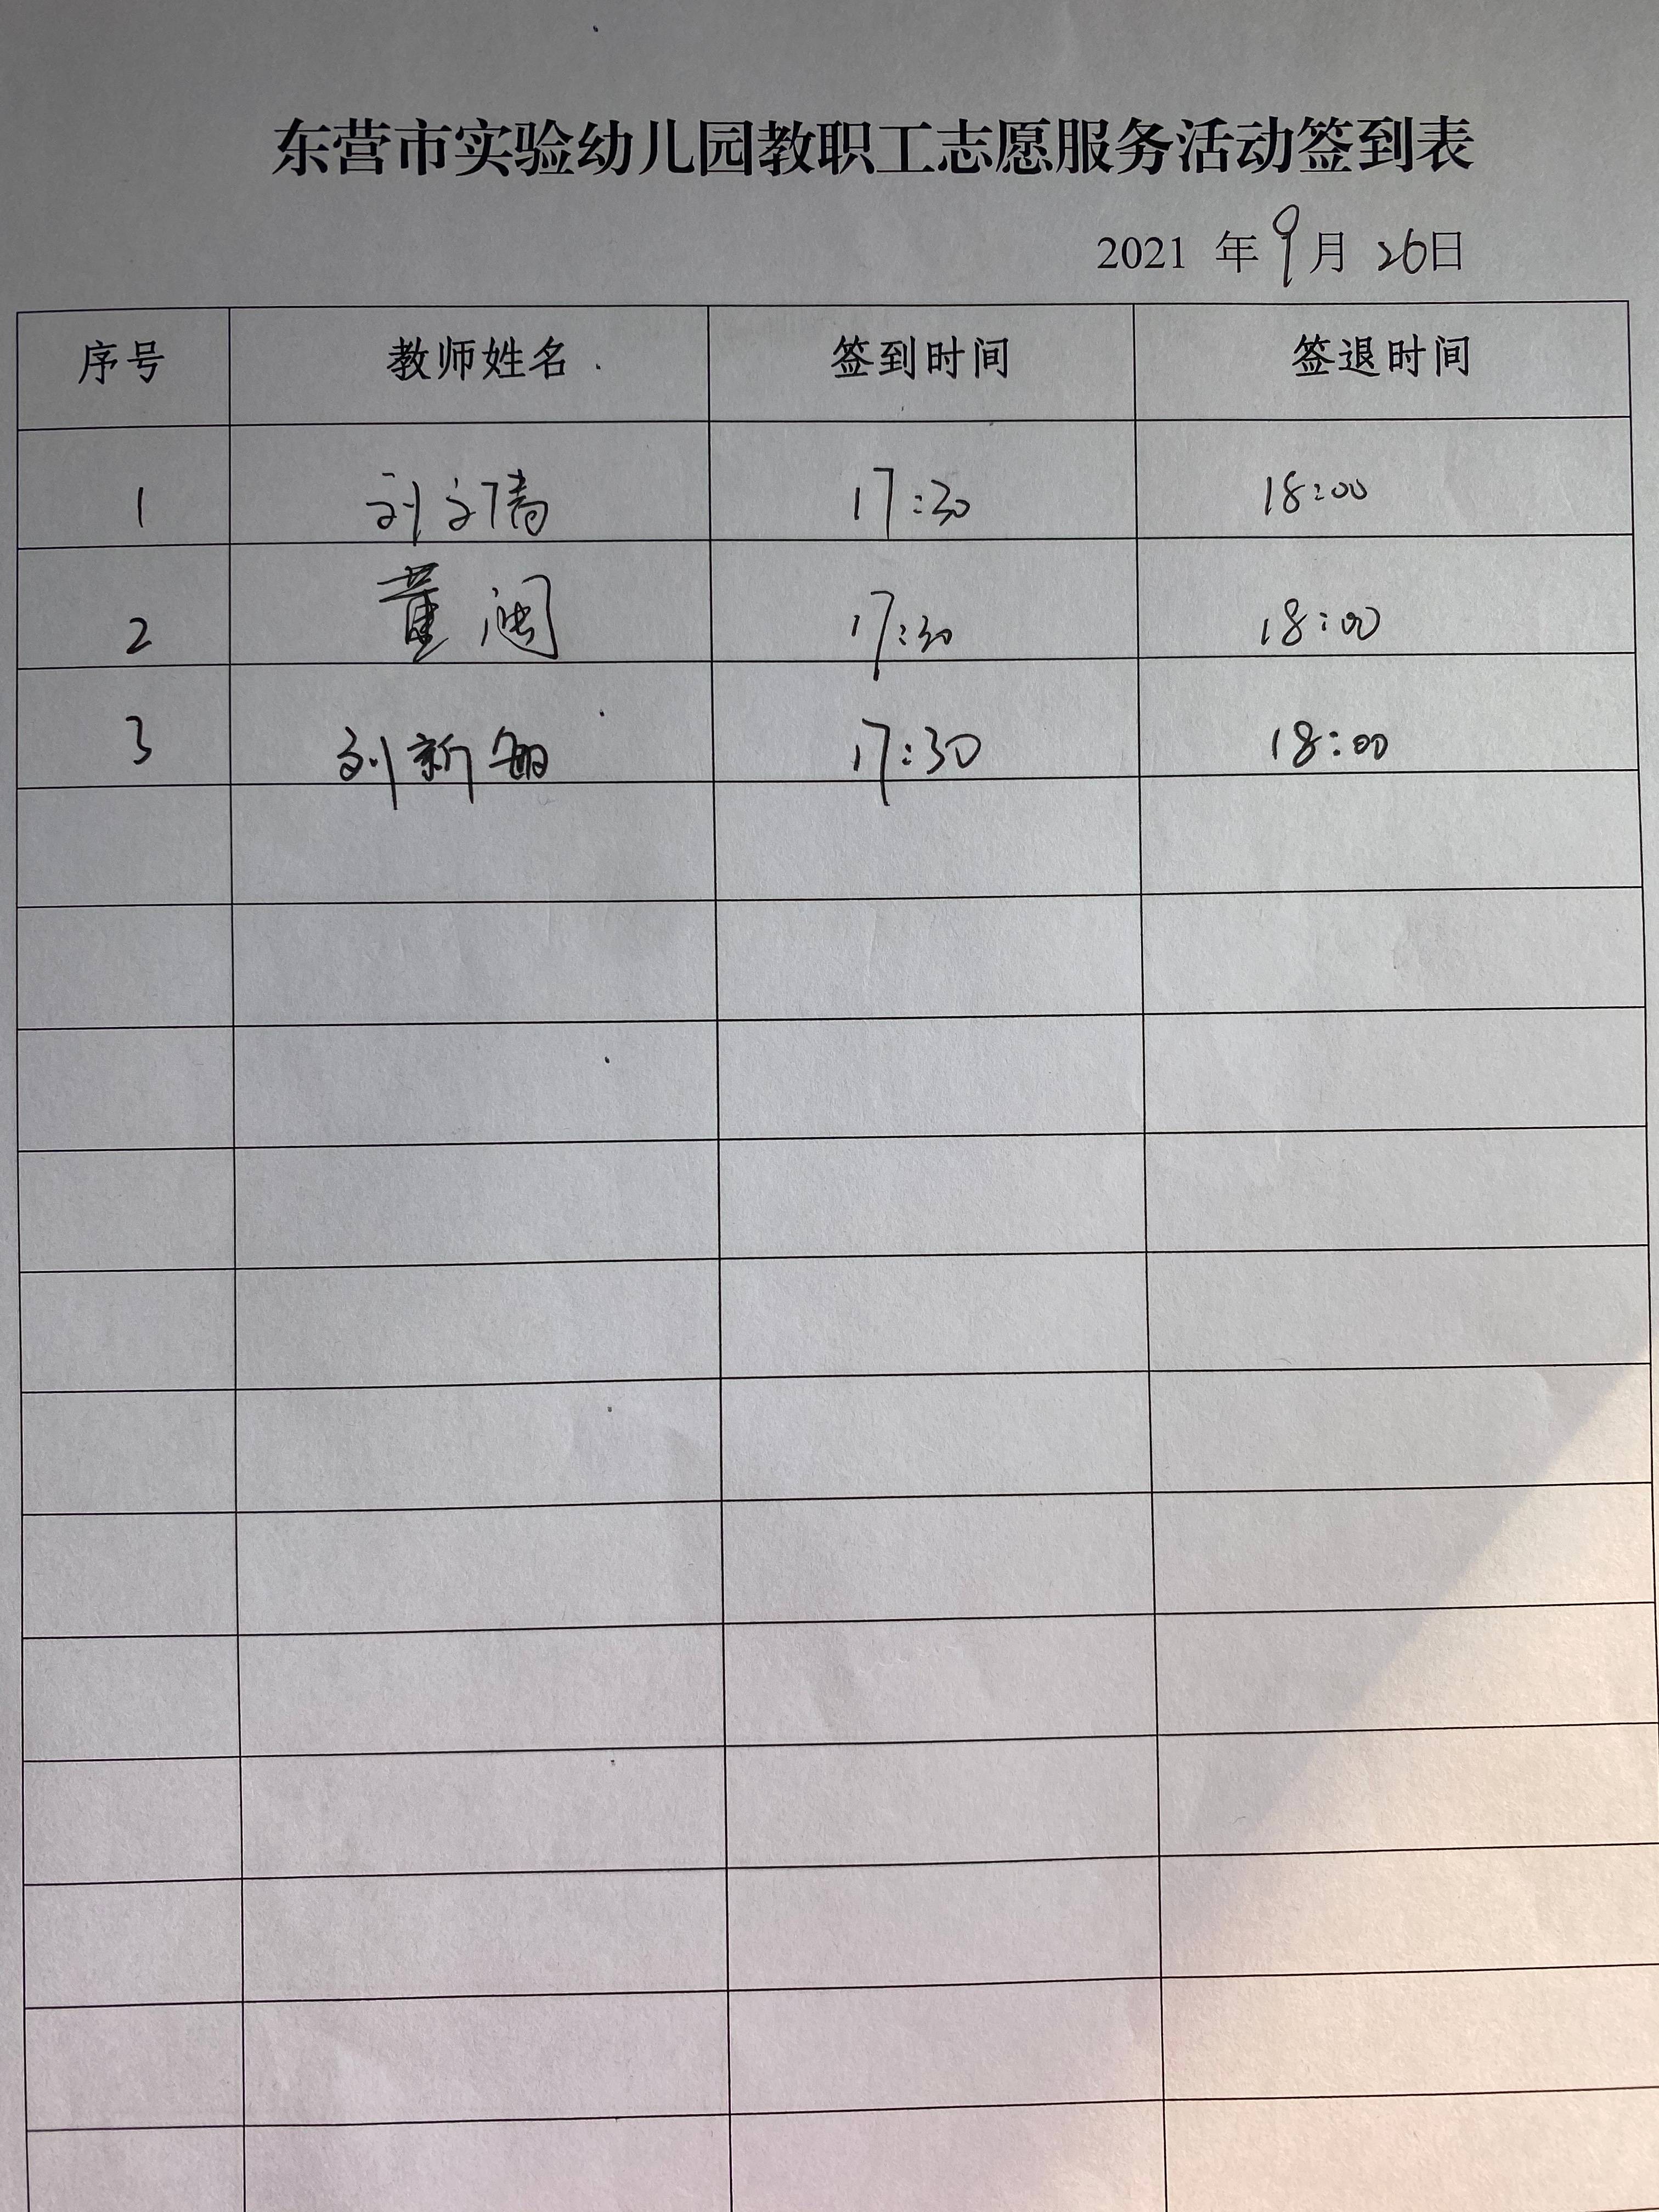 东营市实验幼儿园教职工志愿服务活动签到表
2021 年 9 月 26日
序号 教师姓名 签到时间 签退时间
1 刘文倩 17:30 18:00
2 董 17:30 18:00
3 刘新 17:30 18:00